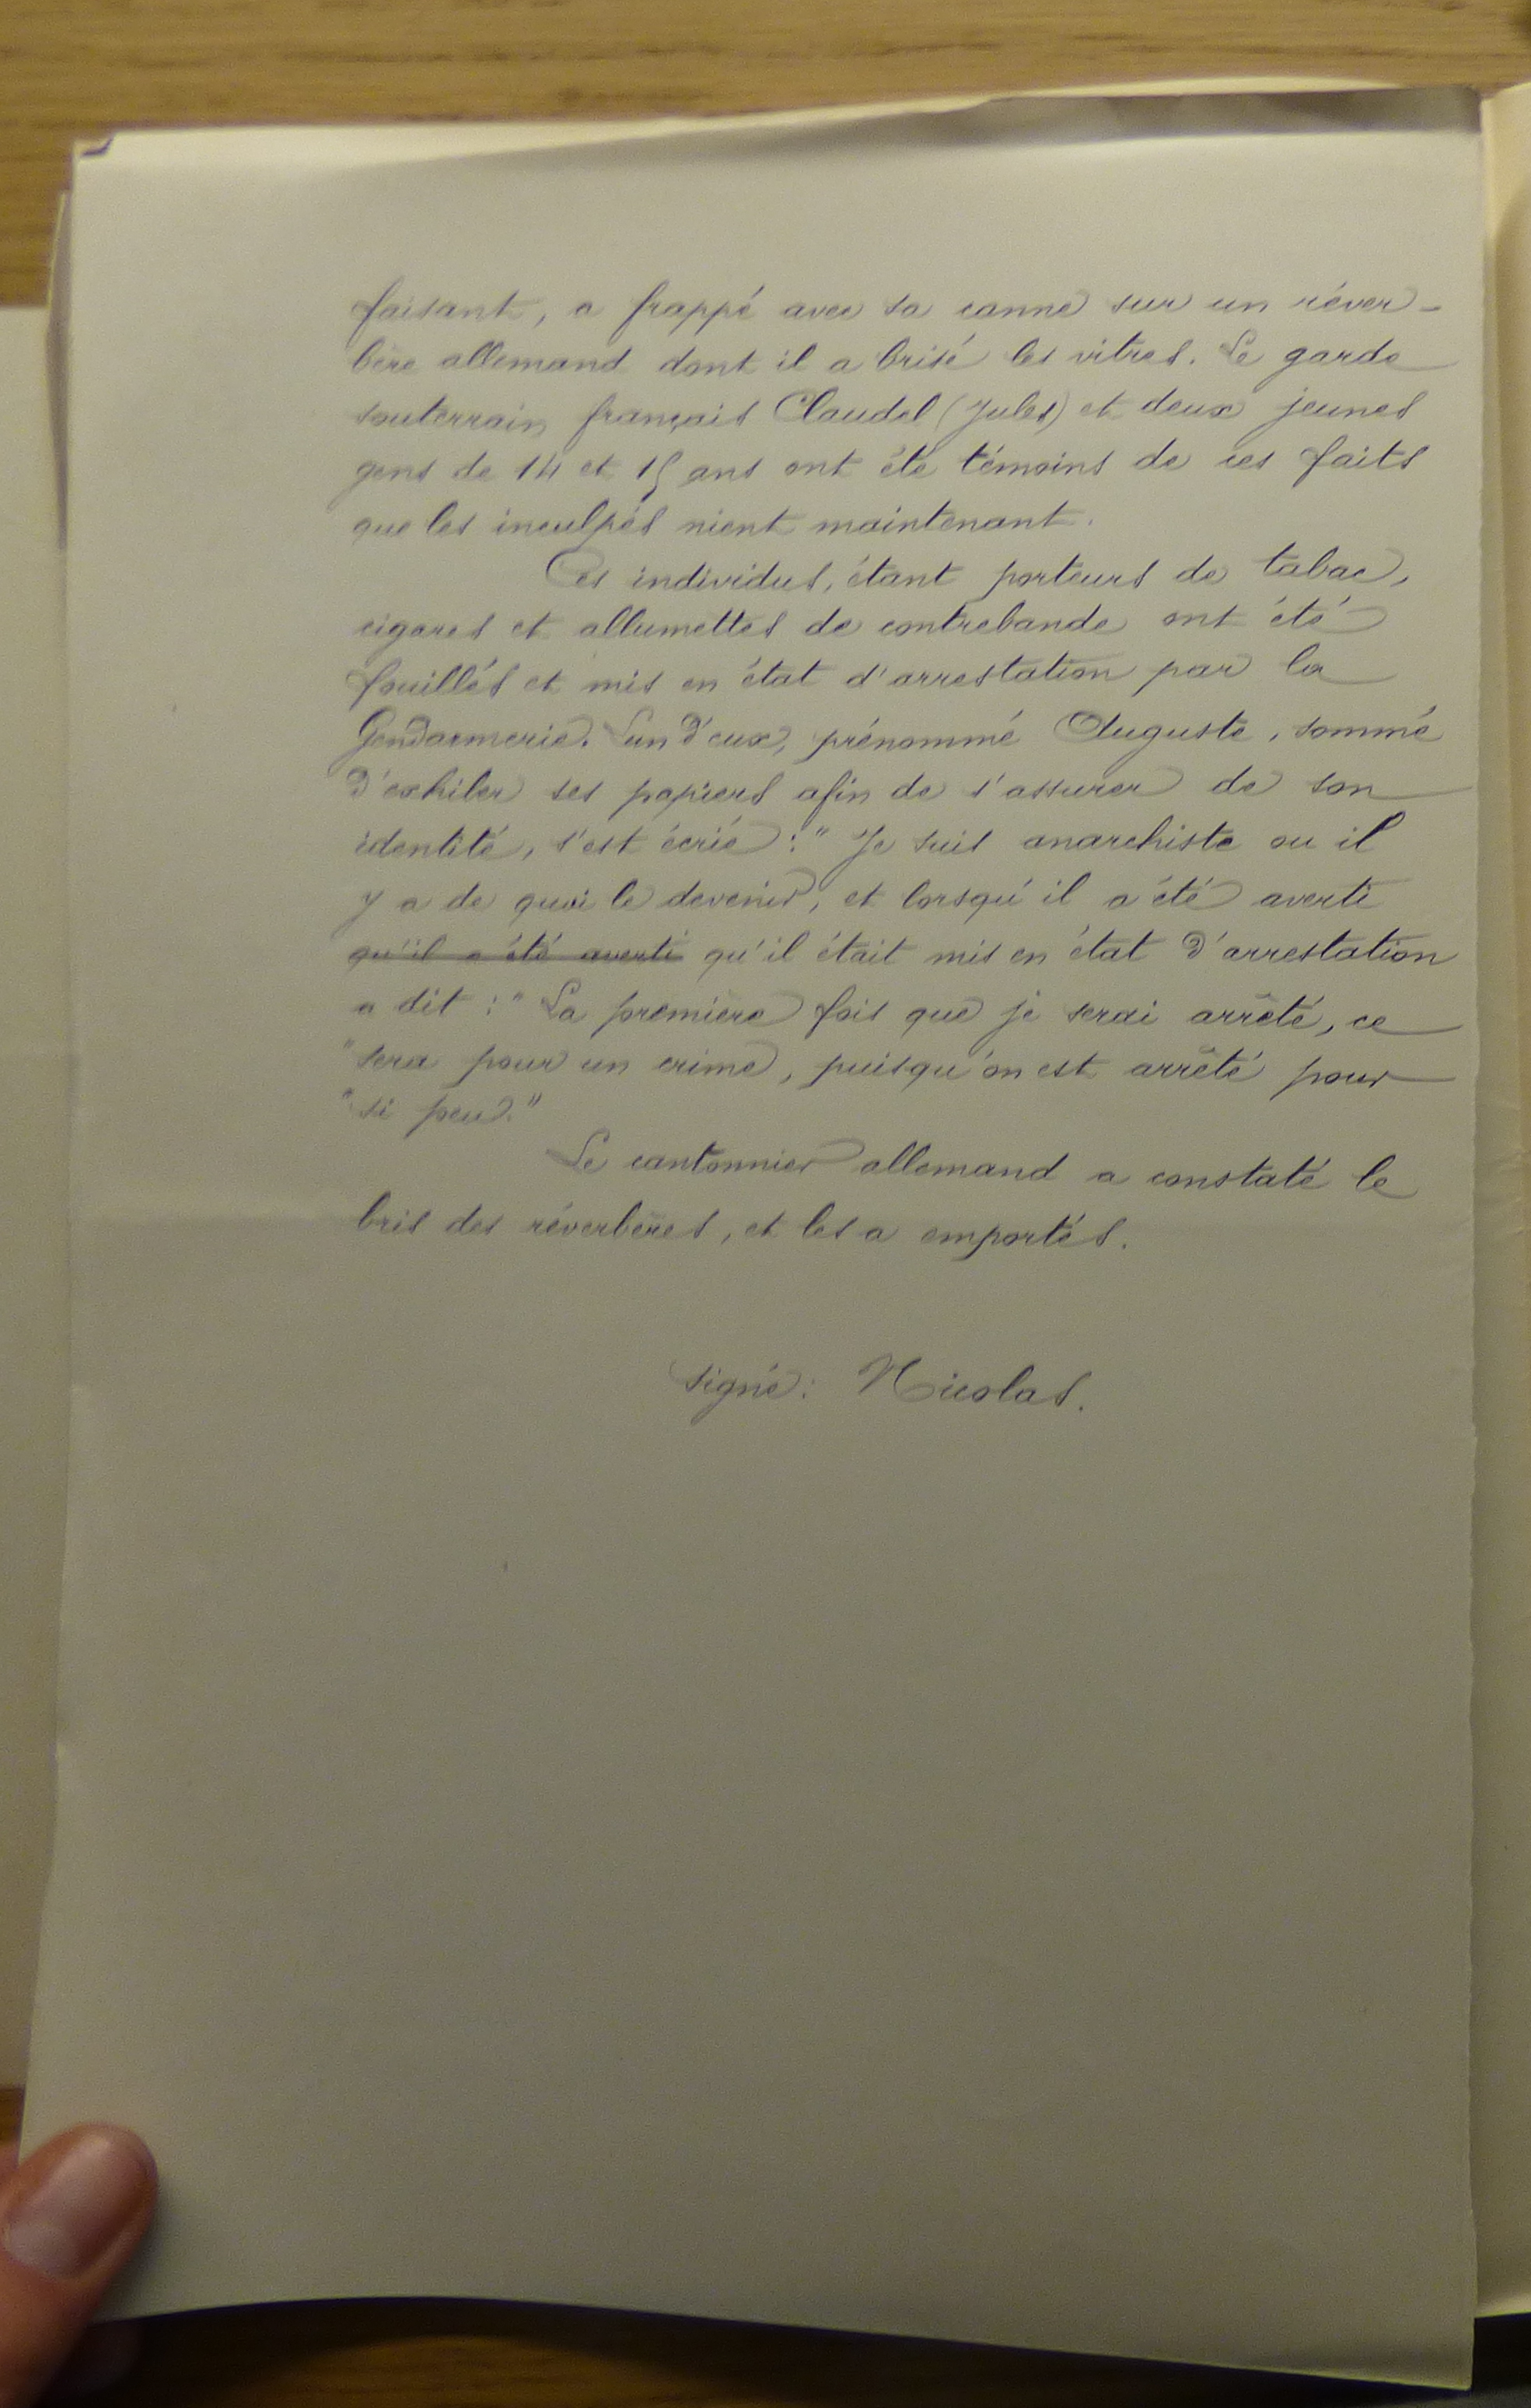 faisant, a frappé avec sa canne sur un réver-
bère allemand dont il a brisé les vitres. Le garde
souterrain français Claudel (Jules) et deux jeunes
gens de 14 et 15 ans ont été témoins de ces faits
que les inculpés nient maintenant.
Ces individus, étant porteurs de tabac,
cigares et allumettes de contrebande ont été
fouillés et mis en état d'arrestation par la
Gendarmerie. L'un d'eux, prénommé Auguste, sommé
d'exhiber ses papiers afin de s'assurer de son
identité, s'est écrié : " Je suis anarchiste ou il
y a de quoi le devenir", et lorsqu'il a été averti
qu'il a été averti qu'il était mis en état d'arrestation
a dit : " La première fois que je serai arrêté, ce
" sera pour un crime, puisqu'on est arrêté pour
" si peu."
Le cantonnier allemand a constaté le
bris des réverbères, et les a emportés.
signé : Nicolas.